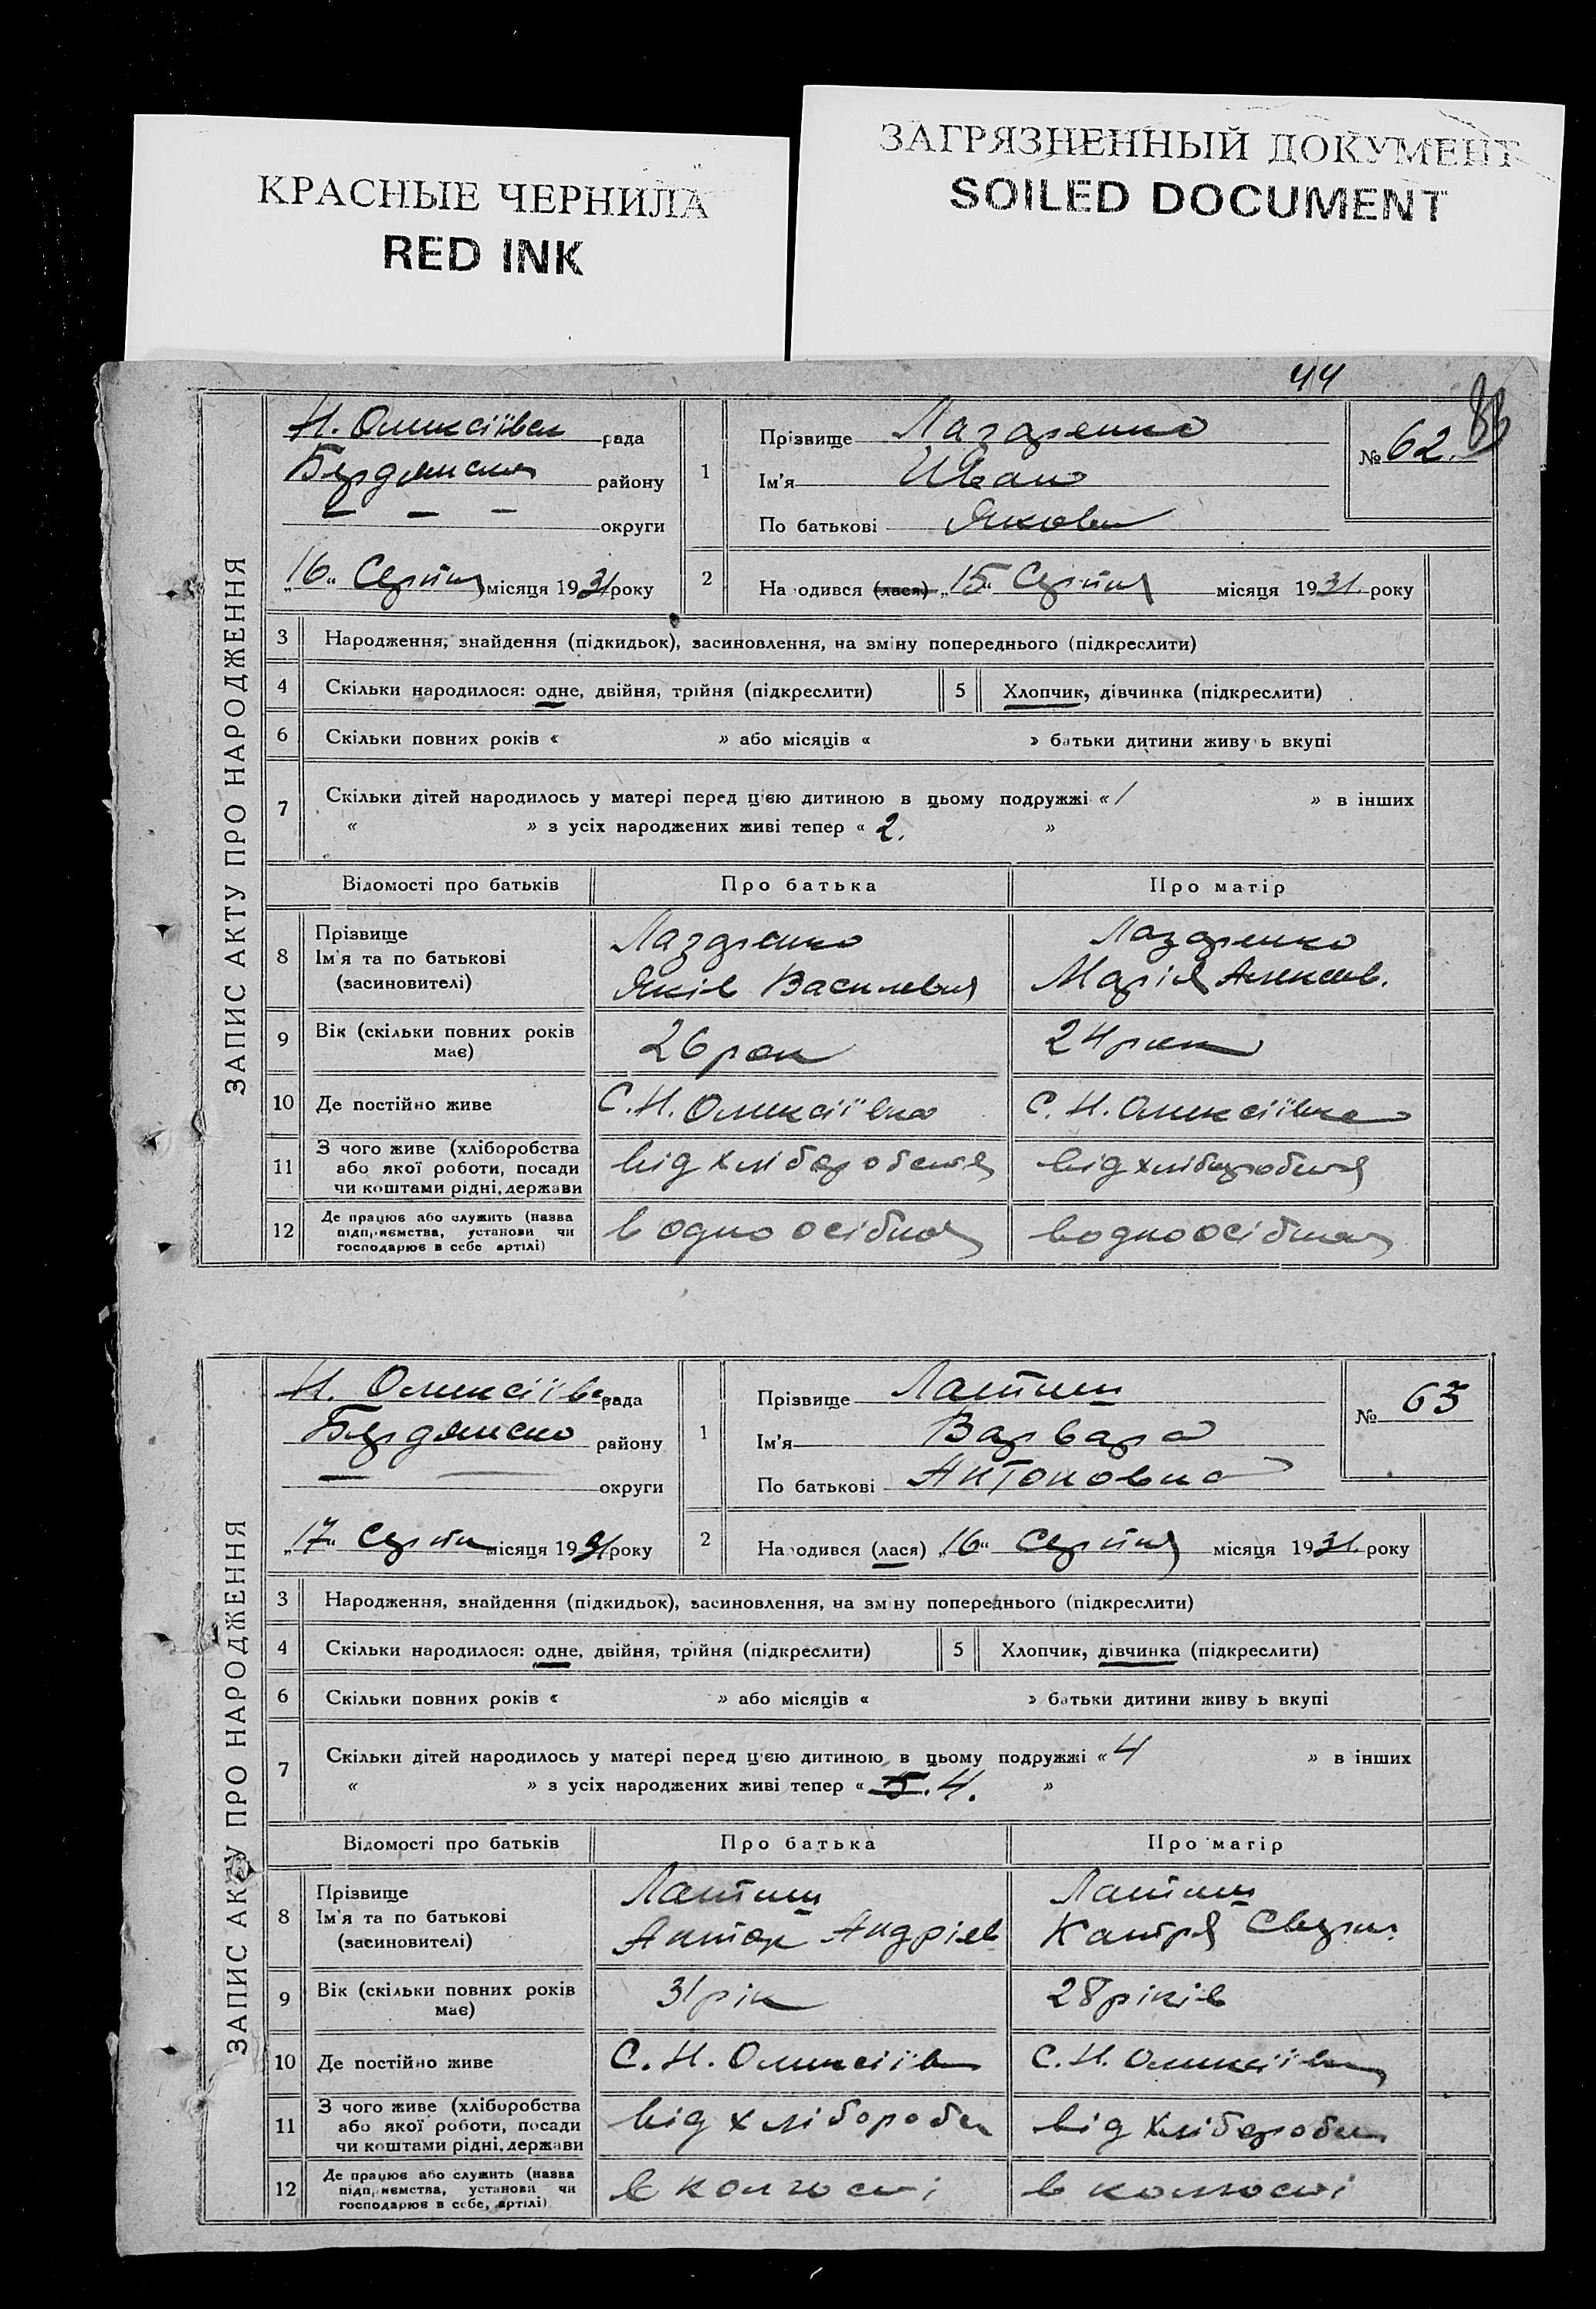 КРАСНЫЕ ЧЕРНИЛА
RED INK
ЗАГРЯЗНЕННЫЙ ДОКУМЕНТ
SOILED DOCUMENT
44
ЗАПИС АКТУ ПРО НАРОДЖЕННЯ
Н. Олексіївсь рада
Бердянськ району
— — — округи
„16“ Серпня місяця 1931 року
1 Прізвище Лазаренко
Ім'я Иван
По батькові Якович
№ 62.
2 На одився (лася) „15“ Серпня місяця 1931. року
3 Народження, знайдення (підкидьок), засиновлення, на зміну попереднього (підкреслити)
4 Скільки народилося: одне, двійня, трійня (підкреслити) 5 Хлопчик, дівчинка (підкреслити)
6 Скільки повних років « » або місяців « » батьки дитини живу ь вкупі
7 Скільки дітей народилось у матері перед цією дитиною в цьому подружжі « 1 » в інших
« » з усіх народжених живі тепер « 2. »
Відомості про батьків Про батька Про матір
8 Прізвище Лазаренко Лазаренко
Ім'я та по батькові Яків Василевич Марія Алексеев.
(засиновителі)
9 Вік (скільки повних років має) 26 рок 24 рок
10 Де постійно живе С. Н. Олексіївка С. Н. Олексіївка
11 З чого живе (хліборобства або якої роботи, посади чи коштами рідні, держави від хліборобства від хліборобства
12 Де працює або служить (назва підприємства, установи чи господарює в себе артілі) в одноосібная в одноосібная
ЗАПИС АКТУ ПРО НАРОДЖЕННЯ
Н. Олексіївс рада
Бердянсько району
— — округи
„17“ Серпня місяця 1931 року
1 Прізвище Лаптии
Ім'я Варвара
По батькові Антоновна
№ 63
2 Народився (лася) „16“ Серпня місяця 1931. року
3 Народження, знайдення (підкидьок), засиновлення, на зміну попереднього (підкреслити)
4 Скільки народилося: одне, двійня, трійня (підкреслити) 5 Хлопчик, дівчинка (підкреслити)
6 Скільки повних років « » або місяців « » батьки дитини живу ь вкупі
7 Скільки дітей народилось у матері перед цією дитиною в цьому подружжі « 4 » в інших
« » з усіх народжених живі тепер « 5. 4. »
Відомості про батьків Про батька Про матір
8 Прізвище
Ім'я та по батькові Антон Андріев Катря
(засиновителі)
9 Вік (скільки повних років має) 31 рік 28 років
10 Де постійно живе С. Н. Олексіїв С. Н. Олексіїв
11 З чого живе (хліборобства або якої роботи, посади чи коштами рідні, держави від хлібороби від хлібороби
12 Де працює або служить (назва підприємства, установи чи господарює в себе, артілі) в колгоспі в колгоспі